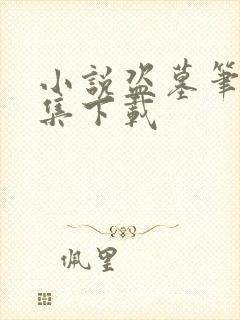 小說盜墓筆
集下載
佩里